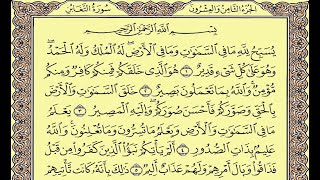 سُورَةُ التَّغَابُنِ الجُزْءُ الثَّامِنُ وَالْعِشْرُونَ
بِسْمِ اللَّهِ الرَّحْمَٰنِ الرَّحِيمِ
يُسَبِّحُ لِلَّهِ مَا فِي السَّمَٰوَٰتِ وَمَا فِي الْأَرْضِ لَهُ الْمُلْكُ وَلَهُ الْحَمْدُ
وَهُوَ عَلَىٰ كُلِّ شَيْءٍ قَدِيرٌ ١ هُوَ الَّذِي خَلَقَكُمْ فَمِنكُمْ كَافِرٌ وَمِنكُم
مُّؤْمِنٌ وَاللَّهُ بِمَا تَعْمَلُونَ بَصِيرٌ ٢ خَلَقَ السَّمَٰوَٰتِ وَالْأَرْضَ
بِالْحَقِّ وَصَوَّرَكُمْ فَأَحْسَنَ صُوَرَكُمْ وَإِلَيْهِ الْمَصِيرُ ٣ يَعْلَمُ
مَا فِي السَّمَٰوَٰتِ وَالْأَرْضِ وَيَعْلَمُ مَا تُسِرُّونَ وَمَا تُعْلِنُونَ وَاللَّهُ
عَلِيمٌ بِذَاتِ الصُّدُورِ ٤ أَلَمْ يَأْتِكُمْ نَبَؤُا الَّذِينَ كَفَرُوا مِن قَبْلُ
فَذَاقُوا وَبَالَ أَمْرِهِمْ وَلَهُمْ عَذَابٌ أَلِيمٌ ٥ ذَٰلِكَ بِأَنَّهُ كَانَت تَّأْتِيهِمْ